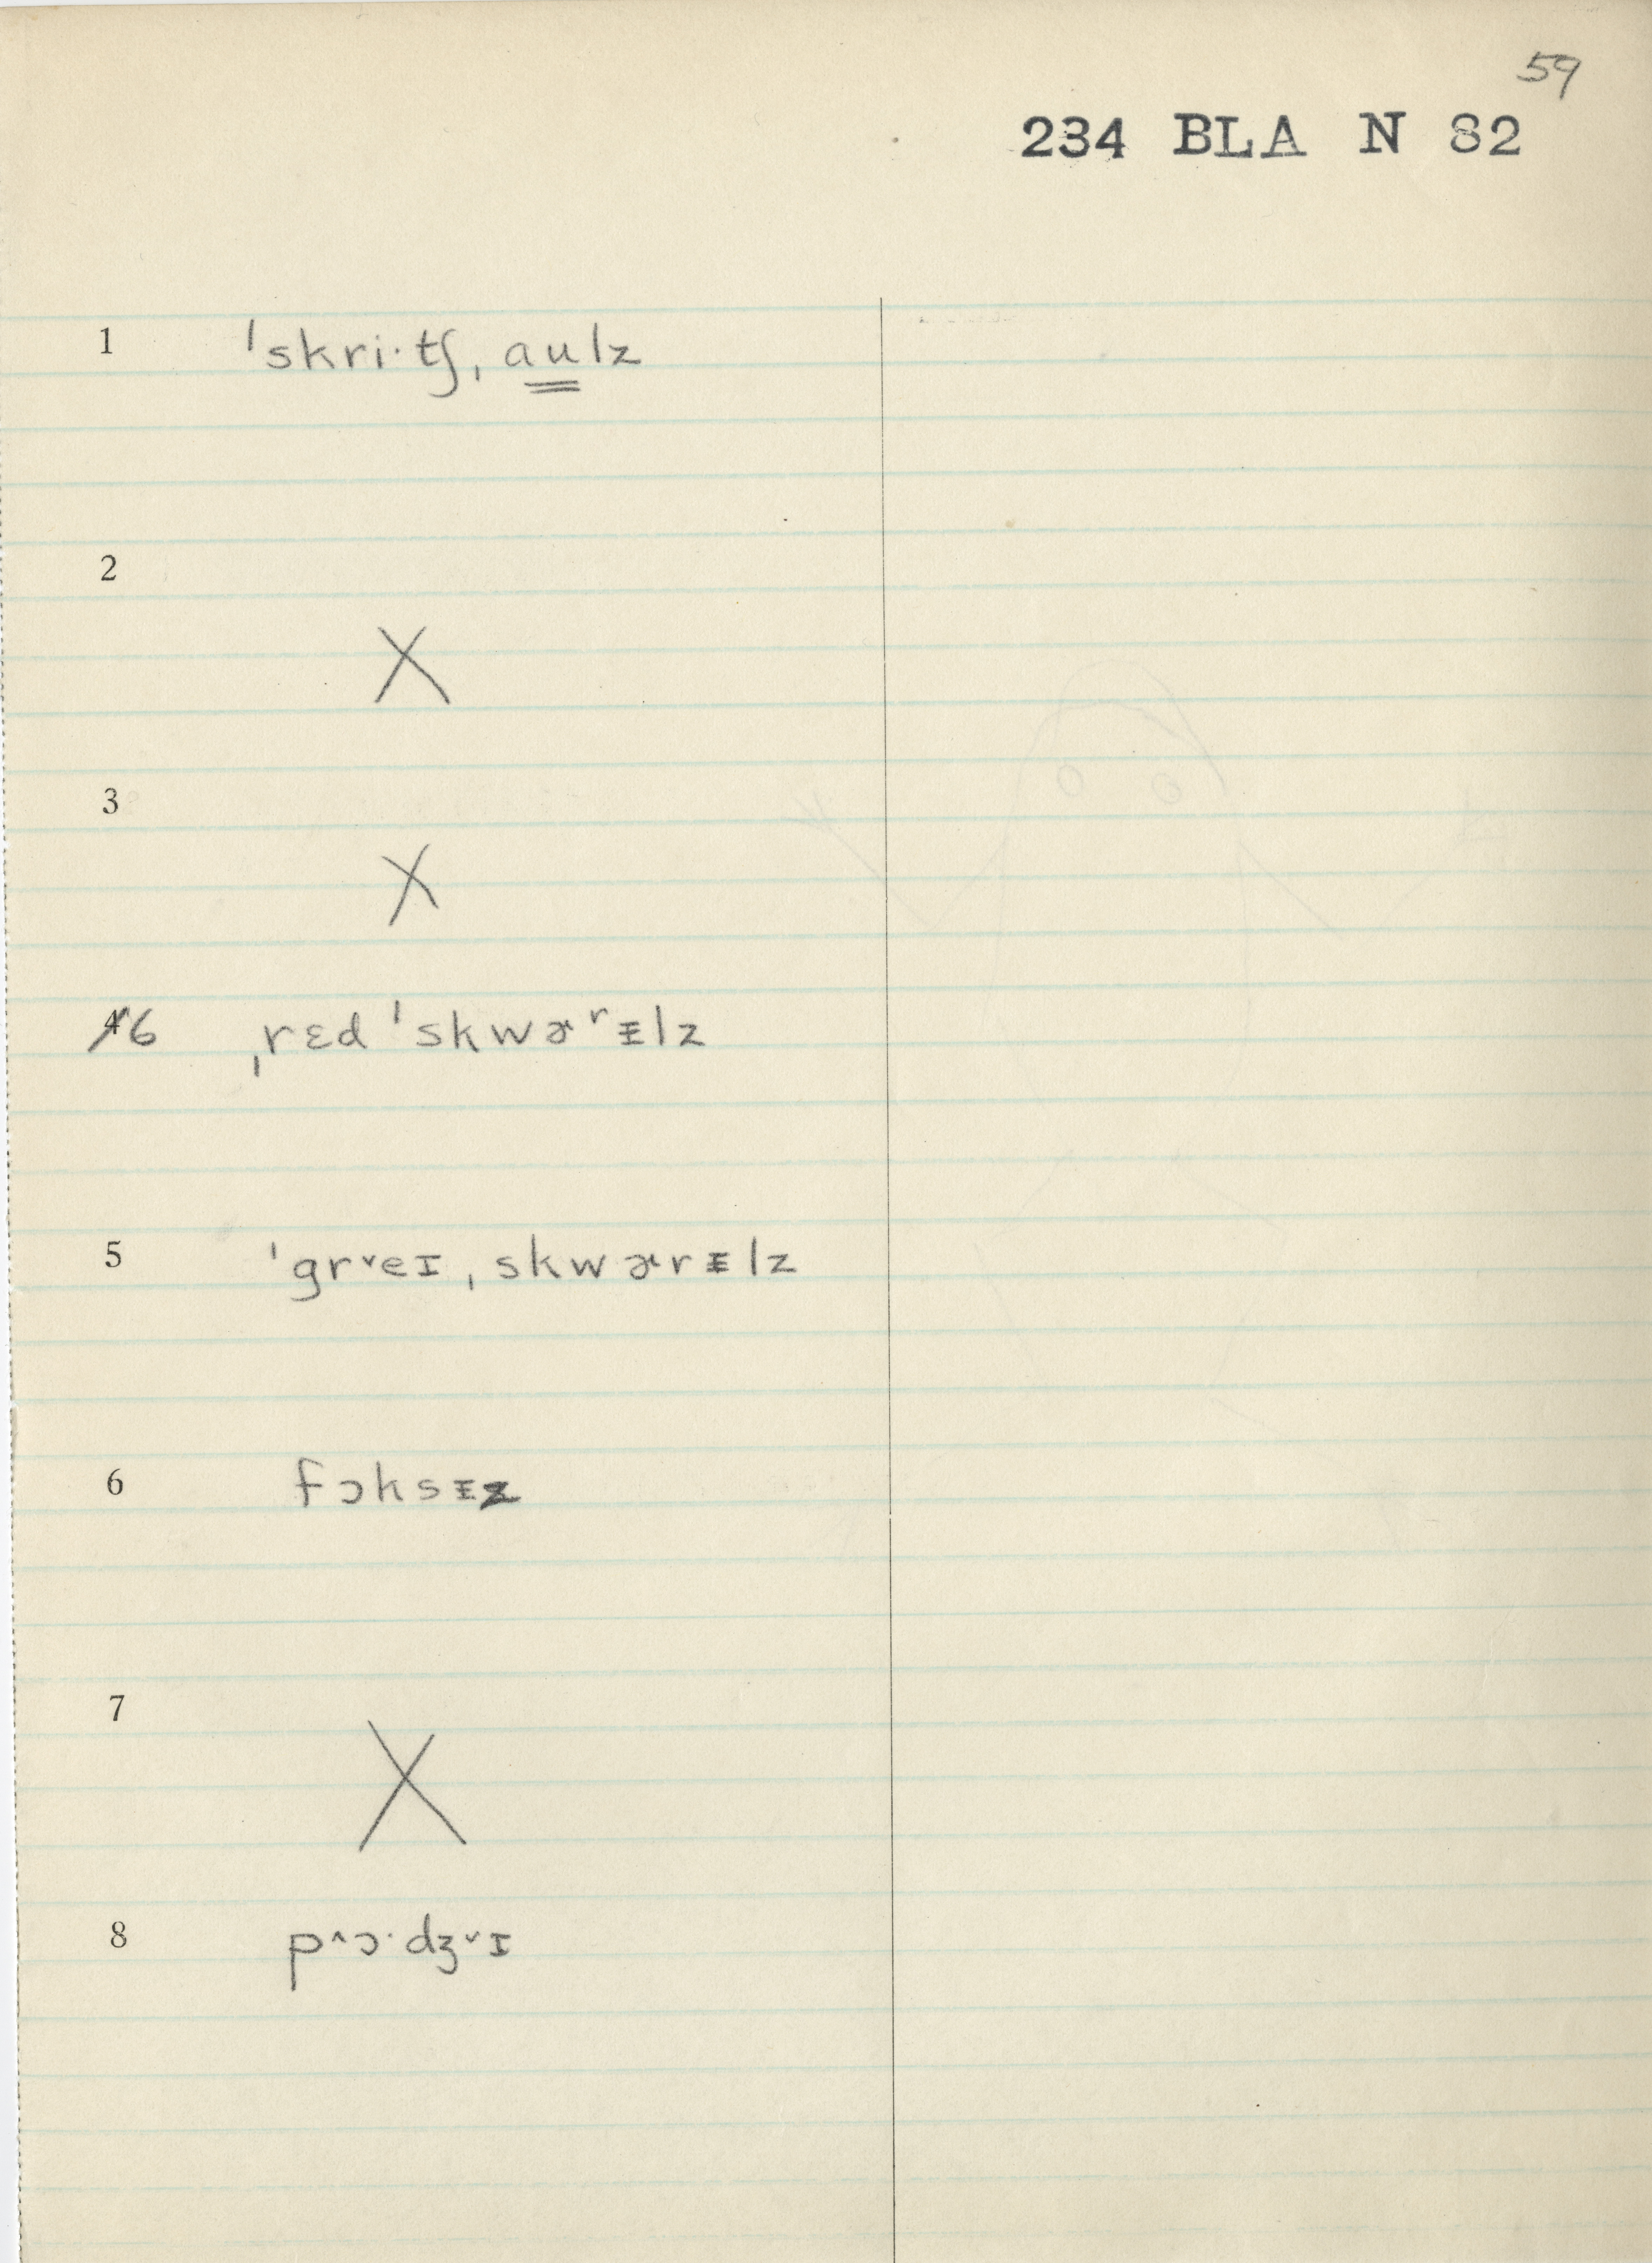 59
234 BLA N 82
1 ˈskri·tʃˌau̳lz
2
X
3
X
4̸6 ˌrɛd ˈskwɚʳᵻlz
5 ˈgr˅eɪˌskwɚrᵻlz
6 fɔksᵻz
7
X
8 p^ɔ·dʒ˅ɪ